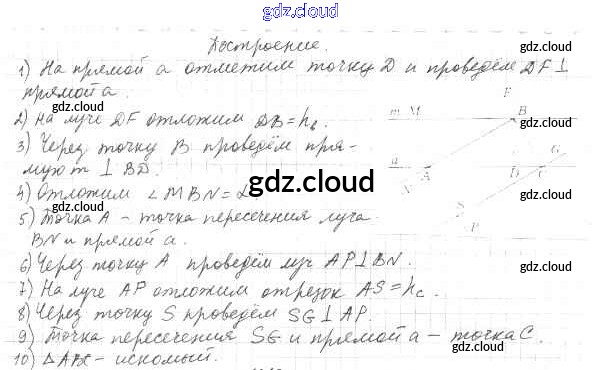 gdz.cloud
gdz.cloud
Построение.
1) На прямой a отметим точку D и проведём DF⊥
прямой a.
2) на луче DF отложим DB = h_b.
3) Через точку B проведём пря-
мую m ⊥ BD.
4) Отложим ∠MBN = α
5) Точка A - точка пересечения луча
BN и прямой a.
6) Через точку A проведём луч AP⊥BN.
7) На луче AP отложим отрезок AS = h_c.
8) Через точку S проведём SG⊥AP.
9) Точка пересечения SG и прямой a - точка C.
10) △ABC - искомый.
gdz.cloud
F
m M B
gdz.cloud
a N A D C G
S P
gdz.cloud
gdz.cloud
gdz.cloud
gdz.cloud